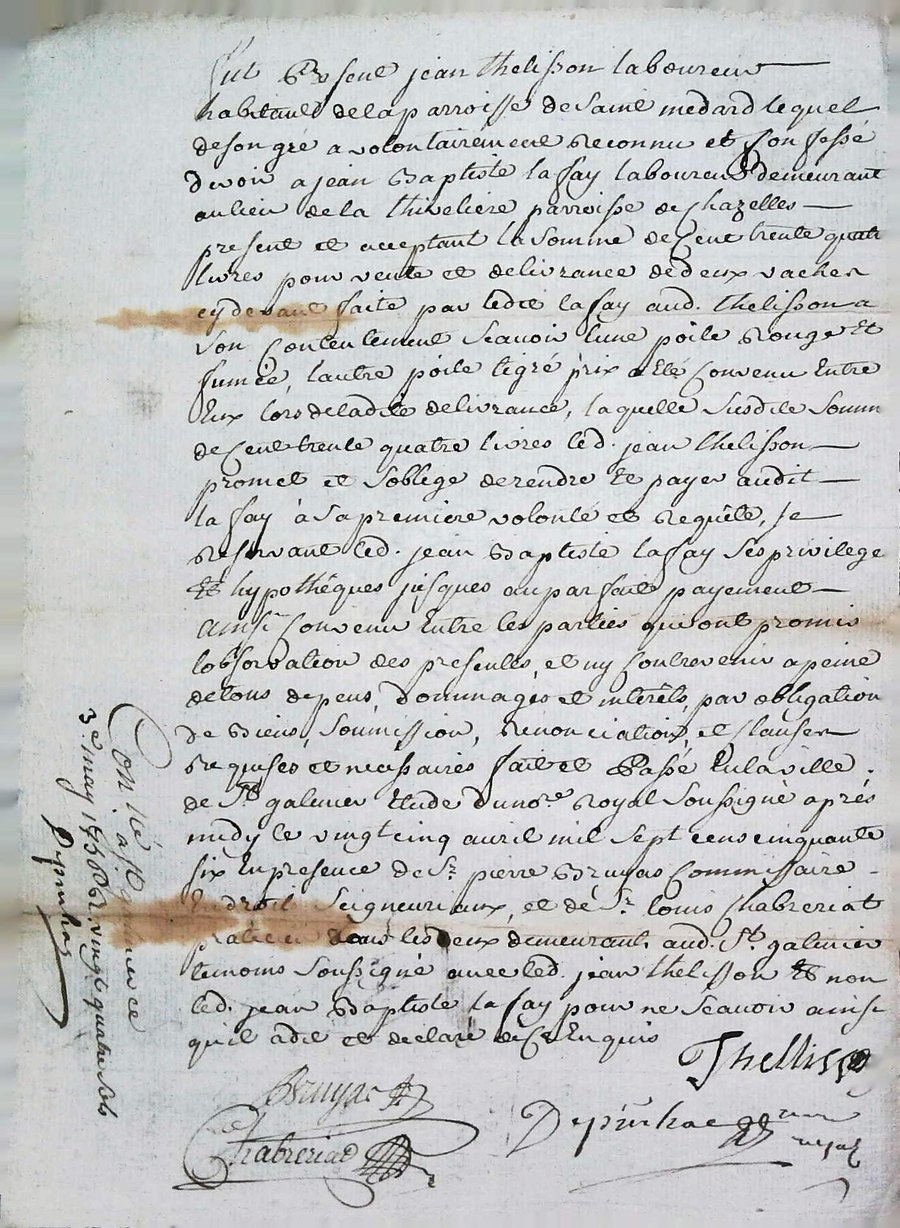 fut present jean thelisson laboureur
habitant de la parroisse de saint medard lequel
de son gré a volontairement reconnu et confessé
devoir a jean Baptiste la fay laboureur demeurant
au lieu de la thiveliere parroisse de chazelles
present et acceptant la somme de Cent trente quatre
livres pour vente et delivrance de deux vaches
cy devant faite par ledit la fay aud. thelisson a
son Contentement Scavoir lune poile Rouge et
fumée, lautre poile tigré prix a Eté Convenu Entre
Eux lors de ladite delivrance, laquelle Susdite Somme
de Cent trente quatre livres led. jean thelisson
promet et Soblege de rendre et payer audit
la fay à Sa premiere volonté et Requête, se
Reservant led. jean Baptiste la fay Ses privilege
et hypothêques jusques au parfait payement
ainsi Convenu Entre les parties qui ont promis
lobservation des presentes, et ny Contrevenir a peine
de tous depens, dommages et interêts, par obligation
de Biens, Soumission, Renonciation, et Clauses
Requises et necessaires fait et Passé En la ville
de St. galmier Etude du nore. Royal Soussigné après
midy le vingt cinq avril mil Sept cens cinquante
six En presence de Sr. pierre Bruyas Commissaire
En droit Seigneuriaux, et de Sr. louis Chabreriat
praticien tous les deux demeurant aud. St. galmier
temoins Soussigné avec led. jean thelisson et non
led. jean Baptiste la fay pour ne Scavoir ainsi
quil a dit et declaré de Ce Enquis
Thellisso
Bruyas
Chabreriat
Depinhac
Con.llé a St galmier ce
3e. may 1756 R. vingt quatre sols
Depinhac